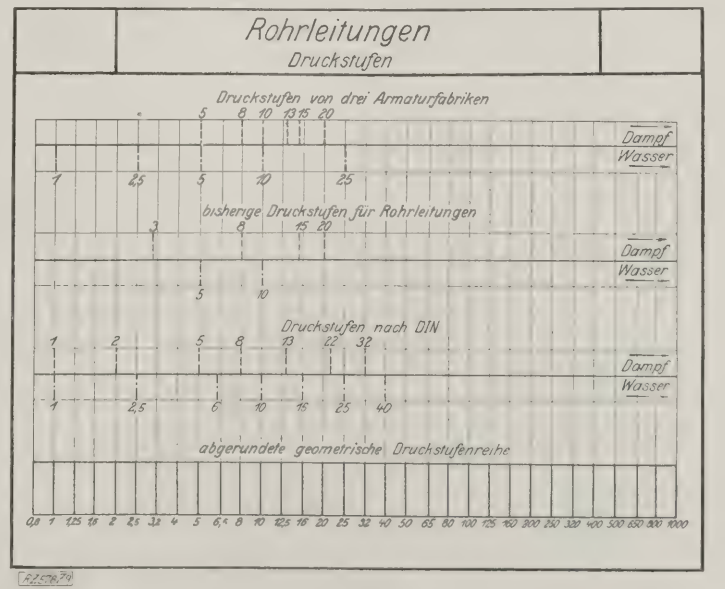 Rohrleitungen
Druckstufen
Druckstufen von drei Armaturfabriken
5 8 10 13 15 20
Dampf
Wasser
1 2,5 5 10 25
bisherige Druckstufen für Rohrleitungen
3 8 15 20
Dampf
Wasser
5 10
Druckstufen nach DIN
1 2 5 8 13 22 32
Dampf
Wasser
1 2,5 6 10 16 25 40
abgerundete geometrische Druckstufenreihe
0,8 1 1,25 1,6 2 2,5 3,2 4 5 6,4 8 10 12,5 16 20 25 32 40 50 65 80 100 125 160 200 250 320 400 500 650 800 1000